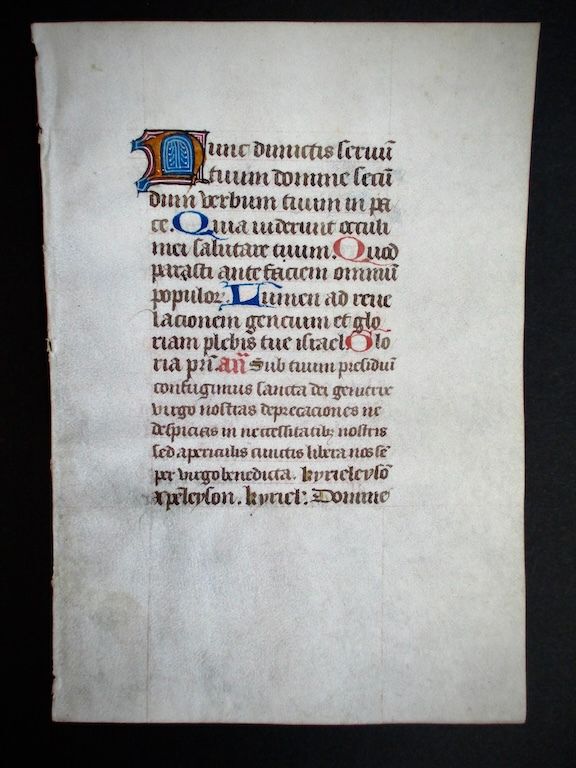 Nunc dimictis servũ
tuum domine secũ
dum verbum tuum in pa
ce. Quia viderunt occuli
mei salutare tuum. Quod
parasti ante faciem omniũ
populoꝝ. Lumen ad reve
lacionem gencium et glo
riam plebis tue israel. Glo
ria pr̃i. añ. Sub tuum presidiũ
confugimus sancta dei genitrix
virgo nostras deprecaciones ne
despicias in neccessitatibꝫ nostris
sed a periculis cunctis libera nos sẽ
per virgo benedicta. kyrieleysõ
xp̃eleyson. kyriel'. Domine